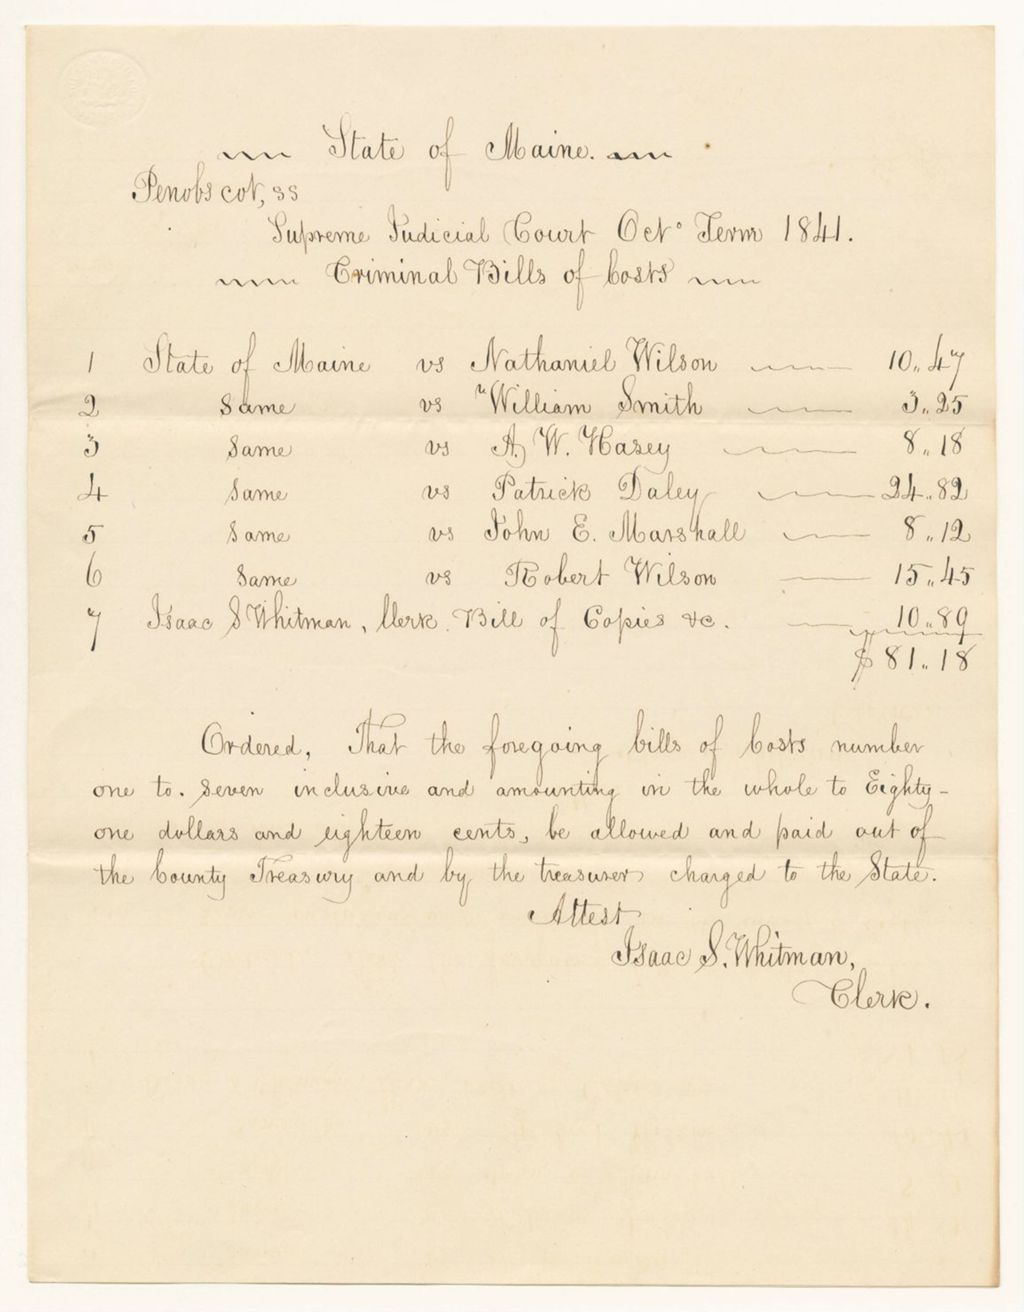 State of Maine.
Penobscot, ss
Supreme Judicial Court Oct° Term 1841.
Criminal Bills of Costs
1 State of Maine vs Nathaniel Wilson 10..47
2 Same vs William Smith 3..25
3 Same vs A, W. Hasey 8..18
4 Same vs Patrick Daley 24..82
5 Same vs John E. Marshall 8..12
6 Same vs Robert Wilson 15..45
7 Isaac S Whitman, Clerk. Bill of Copies &c. 10..89
$81..18
Ordered, That the foregoing bills of Costs number
one to. seven inclusive and amounting in the whole to Eighty-
one dollars and eighteen cents, be allowed and paid out of
the County Treasury and by the treasurer charged to the State.
Attest
Isaac S. Whitman,
Clerk.